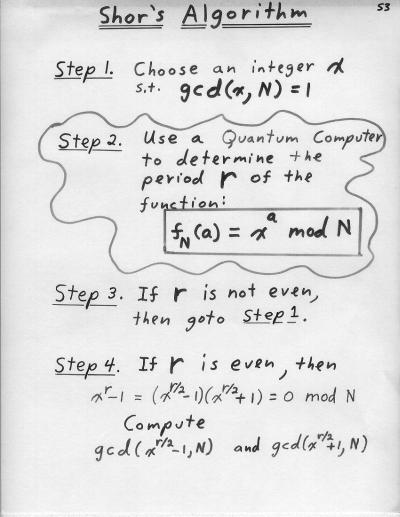 53
Shor's Algorithm
Step 1. Choose an integer x
s.t. gcd(x, N) = 1
Step 2. Use a Quantum Computer
to determine the
period r of the
function:
f_N(a) = x^a mod N
Step 3. If r is not even,
then goto Step 1.
Step 4. If r is even, then
x^r-1 = (x^{r/2}-1)(x^{r/2}+1) = 0 mod N
Compute
gcd(x^{r/2}-1, N) and gcd(x^{r/2}+1, N)